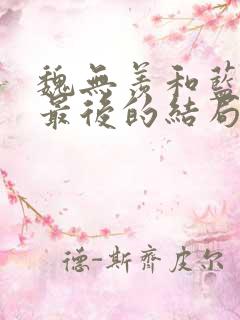 魏無羨和藍
最後的結局
德-斯齊皮尔